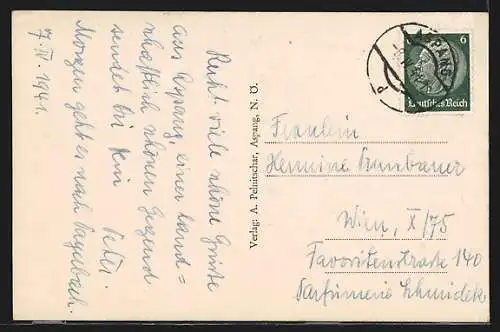 7. IV. 1941.
Recht viele schöne Grüße
aus Aspang, einer land=
schaftlich schönen Gegend
sendet dir Dein
Peter.
Morgen geht es nach
Verlag: A. Pelnitschar, Aspang, N. Ö.
ASPANG
6
Deutsches Reich
Fräulein
Hermine
Wien, X/75
Favoritenstrasse 140
Parfümerie Schmidek